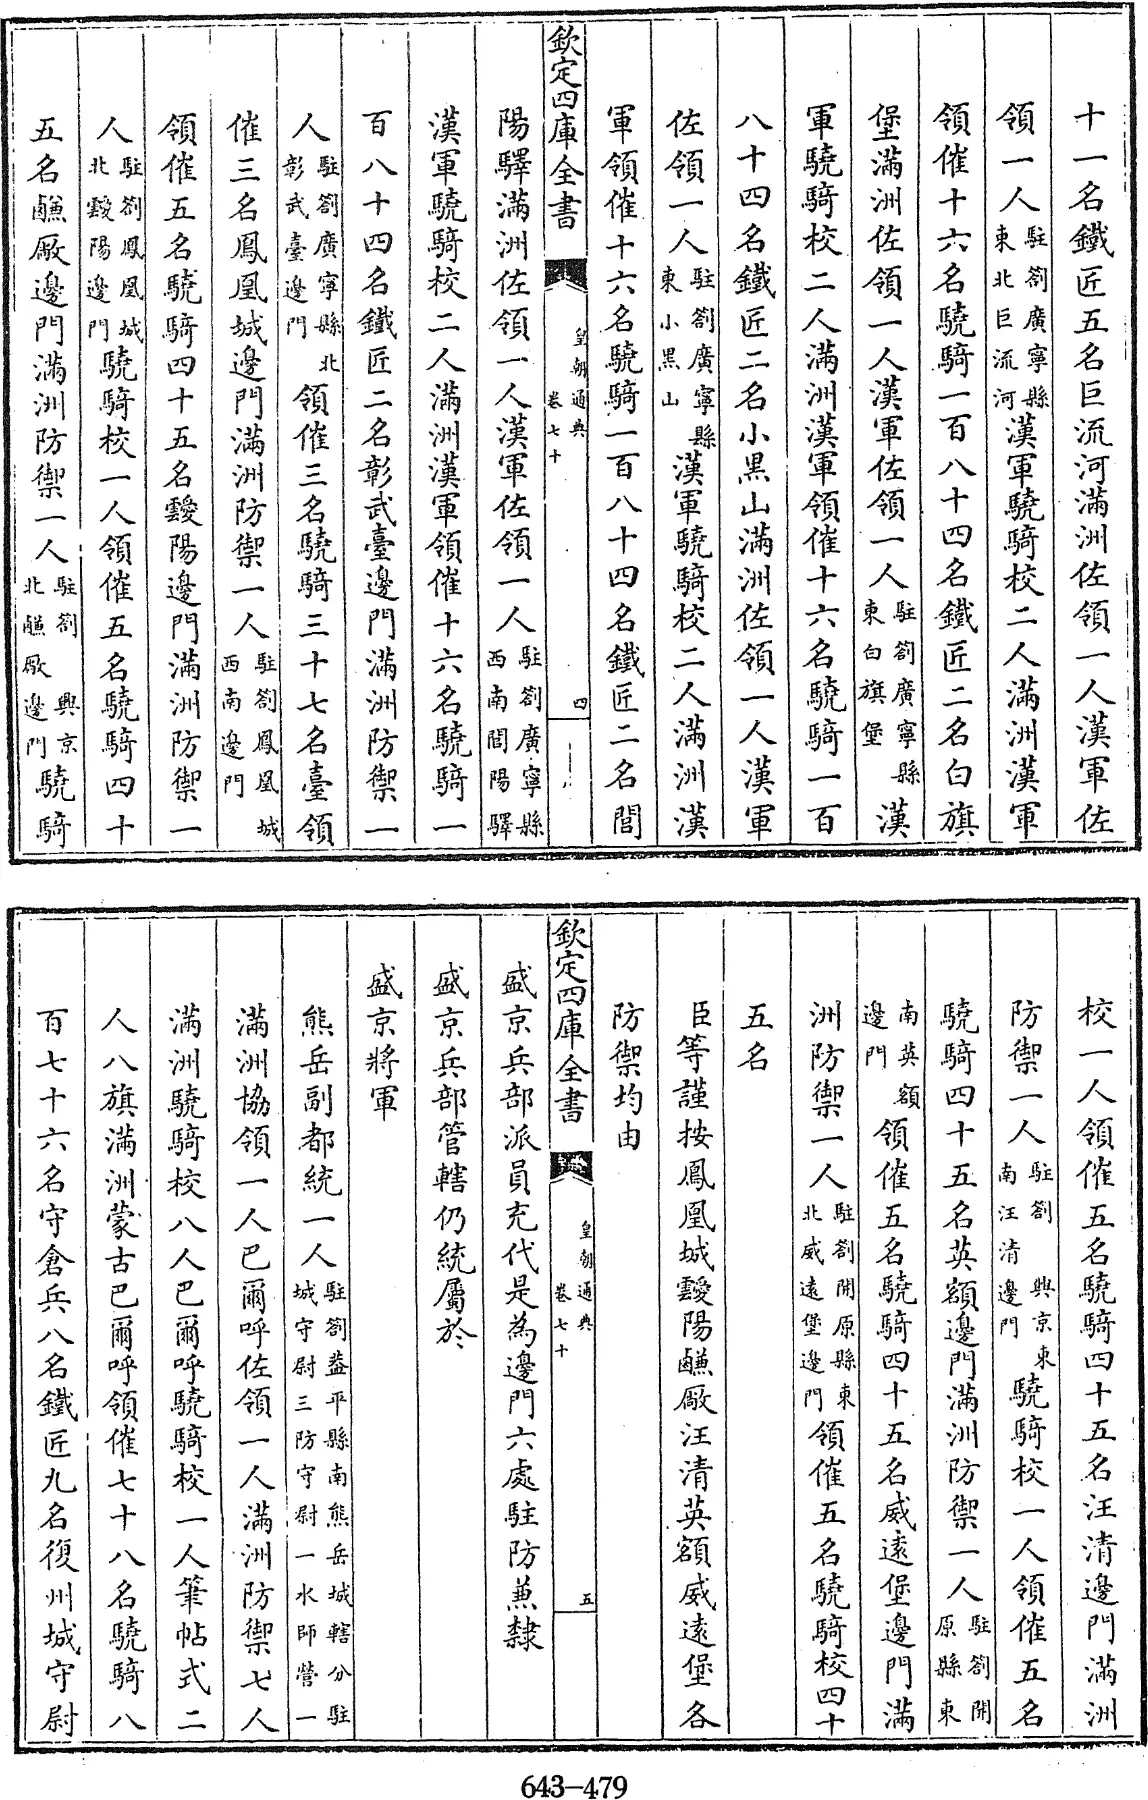 十一名鐵匠五名巨流河滿洲佐領一人漢軍佐
領一人駐劄廣寧縣東北巨流河漢軍驍騎校二人滿洲漢軍
領催十六名驍騎一百八十四名鐵匠二名白旗
堡滿洲佐領一人漢軍佐領一人駐劄廣寧縣東白旗堡漢
軍驍騎校二人滿洲漢軍領催十六名驍騎一百
八十四名鐵匠二名小黑山滿洲佐領一人漢軍
佐領一人駐劄廣寧縣東小黑山漢軍驍騎校二人滿洲漢
軍領催十六名驍騎一百八十四名鐵匠二名閭
欽定四庫全書
皇朝通典
卷七十
四
陽驛滿洲佐領一人漢軍佐領一人駐劄廣寧縣西南閭陽驛
漢軍驍騎校二人滿洲漢軍領催十六名驍騎一
百八十四名鐵匠二名彰武臺邊門滿洲防禦一
人駐劄廣寧縣北彰武臺邊門領催三名驍騎三十七名臺領
催三名鳳凰城邊門滿洲防禦一人駐劄鳳凰城西南邊門
領催五名驍騎四十五名靉陽邊門滿洲防禦一
人駐劄鳳凰城北靉陽邊門驍騎校一人領催五名驍騎四十
五名鹻厰邊門滿洲防禦一人駐劄興京北鹻厰邊門驍騎
校一人領催五名驍騎四十五名汪清邊門滿洲
防禦一人駐劄興京東南汪清邊門驍騎校一人領催五名
驍騎四十五名英額邊門滿洲防禦一人駐劄開原縣東
南英額邊門領催五名驍騎四十五名威遠堡邊門滿
洲防禦一人駐劄開原縣東北威遠堡邊門領催五名驍騎校四十
五名
臣等謹按鳳凰城靉陽鹻厰汪清英額威遠堡各
防禦均由
欽定四庫全書
皇朝通典
卷七十
五
盛京兵部派員充代是為邊門六處駐防兼隸
盛京兵部管轄仍統屬於
盛京將軍
熊岳副都統一人駐劄蓋平縣南熊岳城轄分駐城守尉三防守尉一水師營一
滿洲協領一人巴爾呼佐領一人滿洲防禦七人
滿洲驍騎校八人巴爾呼驍騎校一人筆帖式二
人八旗滿洲蒙古巴爾呼領催七十八名驍騎八
百七十六名守倉兵八名鐵匠九名復州城守尉
643-479